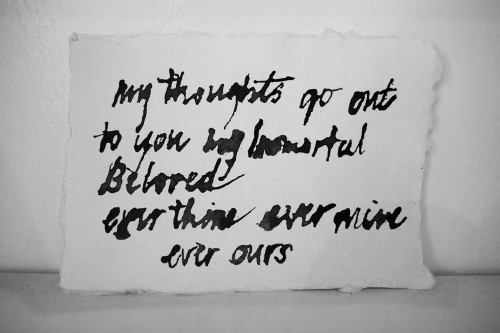 my thoughts go out
to you my Immortal
Beloved
ever thine ever mine
ever ours